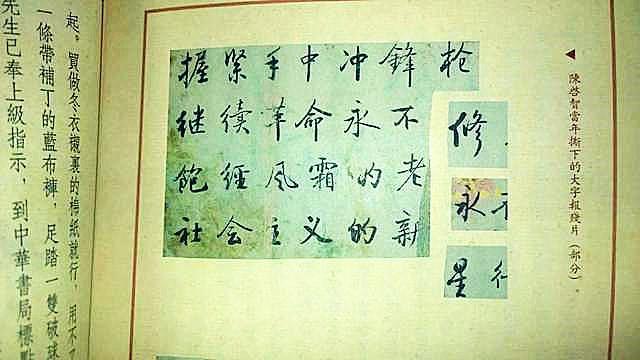 陳啓智當年撕下的大字報殘片（部分）。
握緊手中冲鋒枪
继續革命永不
飽經风霜的老
社会主义的新
修
永
星
起。買做冬衣襯裏的棉紙就行，用不
一條帶補丁的藍布褲，足踏一雙破球
先生已奉上級指示，到中華書局標點